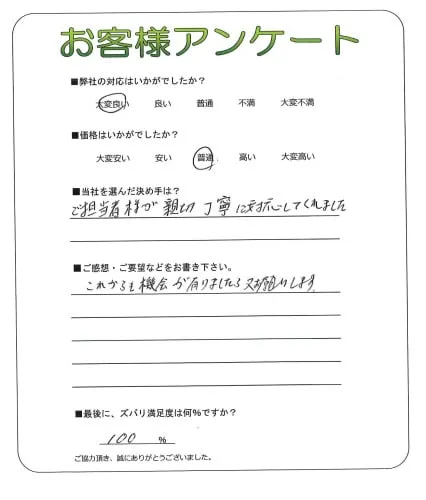 お客様アンケート
■弊社の対応はいかがでしたか?
大変良い 良い 普通 不満 大変不満
■価格はいかがでしたか?
大変安い 安い 普通 高い 大変高い
■当社を選んだ決め手は?
ご担当者様が親切丁寧に対応してくれました
■ご感想・ご要望などをお書き下さい。
これからも機会が有りましたら又お願いします
■最後に、ズバリ満足度は何%ですか?
100 %
ご協力頂き、誠にありがとうございました。